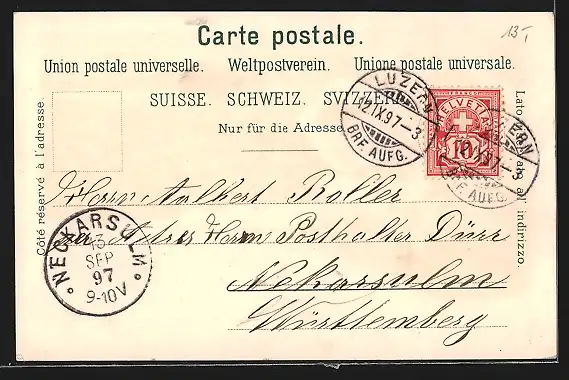 13.-
Carte postale.
Union postale universelle. Weltpostverein. Unione postale universale.
SUISSE. SCHWEIZ. SVIZZERA
Nur für die Adresse
Côté réservé à l'adresse.
Lato all indirizzo.
LUZERN
12.IX.97-3
BRF. AUFG.
FRANCO
HELVETIA
10
LUZERN
12.IX.97-3
BRF. AUFG.
Herrn Adalbert Roller
Herrn Posthalter Dürr
Nekarsulm
Württemberg
NECKARSULM
13
SEP
97
9-10V